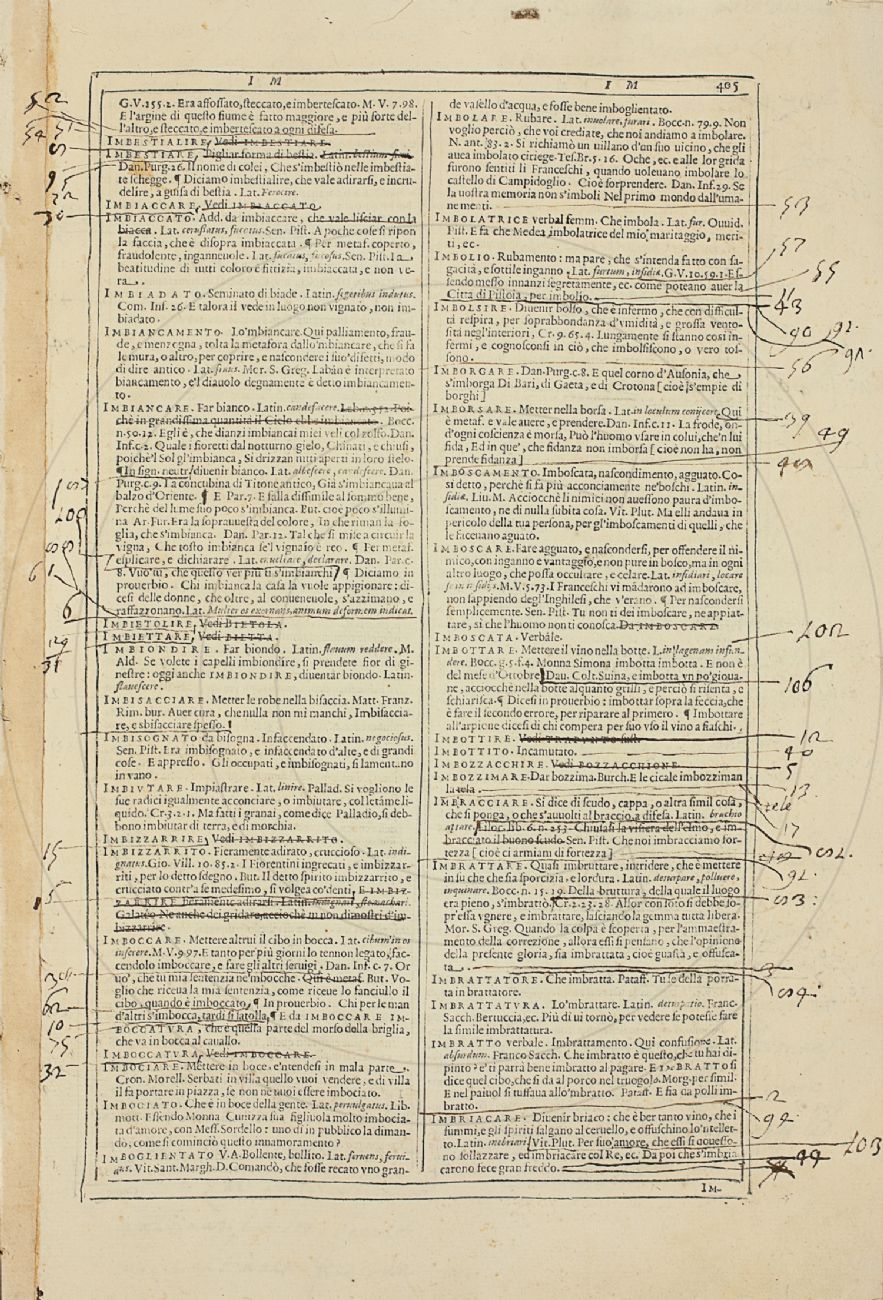 I M
I M
405
G.V.155.2. Era affossato, steccato, e imbertescato. M. V. 7.98.
E l'argine di questo fiume è fatto maggiore, e più forte del-
l'altro, e steccato, e imbertescato a ogni difesa.
IMBESTIALIRE, Vedi IMBESTIARE.
IMBESTIARE, Pigliar forma di bestia.
Dan. Purg. 26. Il nome di colei, Che s'imbestiò nelle imbestia-
te schegge. ¶ Diciamo imbestialire, che vale adirarsi, e incru-
delire, a guisa di bestia. Lat.
IMBIACCARE, Vedi IMBIACCATO.
IMBIACCATO. Add. da imbiaccare, che vale lisciar con la
biacca. Lat. cerussatus, fucatus. Sen. Pist. A poche cose si ripon
la faccia, che è disopra imbiaccata. ¶ Per metaf. coperto,
fraudolente, ingannevole. Lat. fucatus, Sen. Pist. La
beatitudine di tutti coloro è fittizia, imbiaccata, e non ve-
ra.
IMBIADATO. Seminato di biade. Latin. segetibus indutus.
Com. Inf. 26. E talora il vede in luogo non vignato, non im-
biadato.
IMBIANCAMENTO. Lo'mbiancare. Qui palliamento, frau-
de, e menzogna, tolta la metafora dallo'mbiancare, che si fa
le mura, o altro, per coprire, e nascondere i suo' difetti, modo
di dire antico. Lat. fucus. Mor. S. Greg. Labán è interpretato
biancamento, e'l diavolo degnamente è detto imbiancamen-
to.
IMBIANCARE. Far bianco. Latin. candefacere. Lab. n. 572. Poi-
chè in grandissima quantità il Cielo ebbe imbiancato. Bocc.
n. 50.12. Egli è, che dianzi imbiancai miei veli col zolfo. Dan.
Inf. c. 2. Quale i fioretti dal notturno gielo, Chinati, e chiusi,
poichè'l Sol gl'imbianca, Si drizzan tutti aperti in loro stelo.
¶ In sign. neutr. divenir bianco. Lat. albescere, candescere. Dan.
Purg. c. 9. La concubina di Titone antico, Già s'imbiancaua al
balzo d'Oriente. ¶ E Par. 7. E falla dissimile al sommo bene,
Perchè del lume suo poco s'imbianca. But. cioè poco s'illumi-
na Ar. Fur. Era la sopravuesta del colore, In che riman la fo-
glia, che s'imbianca. Dan. Par. 12. Tal che si mise a circuir la
vigna, Che tosto imbianca se'l vignaio è reo. ¶ Per metaf.
esplicare, e dichiarare. Lat. enucleare, declarare. Dan. Par. c.
8. Vuo' tu, che questo ver più ti s'imbianchi? ¶ Diciamo in
prouerbio. Chi imbianca la casa la vuole appigionare: di-
cesi delle donne, che oltre, al conueneuole, s'azzimano, e
raffazzonano. Lat. Mulier os exornans, animum deformem indicat.
IMBIETOLIRE, Vedi BIETOLA.
IMBIETTARE, Vedi BIETTA.
IMBIONDIRE. Far biondo. Latin. flauum reddere. M.
Ald. Se volete i capelli imbiondire, si prendete fior di gi-
nestre: oggi anche IMBIONDIRE, diuentar biondo. Latin.
flauescere.
IMBISACCIARE. Metter le robe nella bisaccia. Matt. Franz.
Rim. bur. Auer cura, che nulla non mi manchi, Imbisaccia-
re, e sbisacciare spesso.
IMBISOGNATO da bisogna. Infaccendato. Latin. negociosus.
Sen. Pist. Era imbisognato, e infaccendato d'alte, e di grandi
cose. E appresso. Gli occupati, e imbisognati, si lamentano
in vano.
IMBIVTARE. Impiastrare. Lat. linire. Pallad. Si vogliono le
sue radici igualmente acconciare, o imbiutare, col letáme li-
quido. Cr. 3.2.1. Ma fatti i granai, come dice Palladio, si deb-
bono imbiutar di terra, e di morchia.
IMBIZZARRIRE, Vedi IMBIZZARRITO.
IMBIZZARRITO. Fieramente adirato, cruccioso. Lat. indi-
gnatus. Gio. Vill. 10.85.2. I Fiorentini ingrecati, e imbizzar-
riti, per lo detto sdegno. But. Il detto spirito imbizzarrito, e
crucciato contr'a se medesimo, si volgea co' denti, E IMBIZ-
ZARRIRE fieramente adirarsi. Latin. indignari,
Galateo. Ne anche dei gridare, acciochè tu non dimostri d'im-
bizzarrire.
IMBOCCARE. Mettere altrui il cibo in bocca. Lat. cibum in os
inserere. M. V. 9.97. E tanto per più giorni lo tennon legato, fac-
cendolo imboccare, e fare gli altri seruigi. Dan. Inf. c. 7. Or
vo', che tu mia sentenzia ne'mbocche. Qui è metaf. But. Vo-
glio che riceua la mia sentenzia, come riceue lo fanciullo il
cibo, quando è imboccato. ¶ In prouerbio. Chi per le man
d'altri s'imbocca, tardi si satolla. ¶ E da IMBOCCARE IM-
BOCCATVRA, che è quella parte del morso della briglia,
che va in bocca al cauallo.
IMBOCCATVRA, Vedi IMBOCCARE.
IMBOCIARE. Mettere in boce. e'ntendesi in mala parte.
Cron. Morell. Serbati in villa quello vuoi vendere, e di villa
il fa portare in piazza, se non ne vuoi essere imbociato.
IMBOCIATO. Che è in boce della gente. Lat. peruulgatus. Lib.
mott. Essendo Monna Cunizza sua figliuola molto imbocia-
ta d'amore, con Mess. Sordello: uno dì in pubblico la diman-
do, come si cominciò questo innamoramento?
IMBOGLIENTATO V.A. Bollente, bollito. Lat. feruens,
Vit. Sant. Margh. D. Comandò, che fosse recato vno gran-
de vasello d'acqua, e fosse bene imboglientato.
IMBOLARE. Rubare. Lat. inuolare, furari. Bocc. n. 79.9. Non
voglio perciò, che voi crediate, che noi andiamo a imbolare.
N. ant. 83.2. Si richiamò un uillano d'un suo uicino, che gli
auea imbolato ciriege. Tes. Br. 5.16. Oche, ec. e alle lor grida
furono sentiti li Franceschi, quando uoleuano imbolare lo
castello di Campidoglio. Cioè sorprendere. Dan. Inf. 29. Se
la uostra memoria non s'imboli Nel primo mondo dall'uma-
ne menti.
IMBOLATRICE verbal femm. Che imbola. Lat. fur. Ouuid.
Pist. E fa che Medea imbolatrice del mio maritaggio, meri-
ti, ec.
IMBOLIO. Rubamento: ma pare, che s'intenda fatto con sa-
gacità, e sottile inganno. Lat. furtum, insidiæ. G. V. 10.59.1. Es-
sendo messo innanzi segretamente, ec. come poteano auer la
Città di Pistoia, per imbolio.
IMBOLSIRE. Diuenir bolso, che è infermo, che con difficul-
tà respira, per soprabbondanza d'vmidità, e grossa vento-
sità negl'interiori, Cr. 9.65.4. Lungamente si stanno così in-
fermi, e cognosconsi in ciò, che imbolsiscono, o vero tos-
sono.
IMBORGARE. Dan. Purg. c. 8. E quel corno d'Ausonia, che
s'imborga Di Bari, di Gaeta, e di Crotona [cioè s'empie di
borghi]
IMBORSARE. Metter nella borsa. Lat. in loculum conijcere. Qui
è metaf. e vale auere, e prendere. Dan. Inf. c. 11. La frode, on-
d'ogni coscienza è morsa, Può l'huomo vsare in colui, che'n lui
fida, Ed in que', che fidanza non imborsa [cioè non ha, non
prende fidanza]
IMBOSCAMENTO. Imboscata, nascondimento, agguato. Co-
sì detto, perchè si fa più acconciamente ne' boschi. Latin. in-
sidiæ. Liu. M. Acciocchè li nimici non auessono paura d'imbo-
scamento, ne di nulla subita cosa. Vit. Plut. Ma elli andaua in
pericolo della tua persona, per gl'imboscamenti di quelli, che
le faceuano aguato.
IMBOSCARE. Fare agguato, e nascondersi, per offendere il ni-
mico, con inganno e vantaggio, e non pure in bosco, ma in ogni
altro luogo, che possa occultare, e celare. Lat. insidiari, locare
M. V. 5.73. I Franceschi vi mádarono ad imboscare,
non sappiendo degl'Inghilesi, che v'erano. ¶ Per nascondersi
semplicemente. Sen. Pist. Tu non ti dei imboscare, ne appiat-
tare, si che l'huomo non ti conosca. Da IMBOSCARE
IMBOSCATA. Verbále.
IMBOTTARE. Mettere il vino nella botte. L. in lagenam infun-
dere. Bocc. g. 5. f. 4. Monna Simona imbotta imbotta. E non è
del mese d'Ottobre. Dau. Colt. Suina, e imbotta vn po' gioua-
ne, acciocchè nella botte alquanto grilli, e perciò si risenta, e
schiarisca. ¶ Dicesi in prouerbio: imbottar sopra la feccia, che
è fare il secondo errore, per riparare al primero. ¶ Imbottare
all'arpione dicesi di chi compera per suo vso il vino a fiaschi.
IMBOTTIRE. Vedi TRAPVNTO sust.
IMBOTTITO. Incamutato.
IMBOZZACCHIRE. Vedi BOZZACCHIONE.
IMBOZZIMARE. Dar bozzima. Burch. E le cicale imbozziman
la tela.
IMBRACCIARE. Si dice di scudo, cappa, o altra simil cosa,
che si ponga, o che s'auuolti al braccio, a difesa. Latin. brachio
aptare. Filoc. lib. 6. n. 253. Chiusasi la visiera dell'elmo, e im-
bracciato il buono scudo. Sen. Pist. Che noi imbracciamo for-
tezza [cioè ci armiam di fortezza]
IMBRATTARE. Quasi imbruttare, intridere, che è mettere
in su che che sia sporcizia, e lordura. Latin. deturpare, polluere,
inquinare. Bocc. n. 15.19. Della bruttura, della quale il luogo
era pieno, s'imbrattò. Cr. 1.23.28. Allor con loto si debbe so-
pr'essa vgnere, e imbrattare, lasciando la gemma tutta libera.
Mor. S. Greg. Quando la colpa è scoperta, per l'ammaestra-
mento della correzione, allora essi si pensano, che l'opinione
della presente gloria, sia imbrattata, cioè guasta, e offusca-
ta.
IMBRATTATORE. Che imbratta. Pataff. Tu se della porra-
ta in brattatore.
IMBRATTATVRA. Lo'mbrattare. Latin. deturpatio. Franc.
Sacch. Bertuccia, ec. Più dì ui tornò, per vedere se potesse fare
la simile imbrattatura.
IMBRATTO verbale. Imbrattamento. Qui confusione. Lat.
absurdum. Franco Sacch. Che imbratto è questo, che tu hai di-
pinto? e' ti parrà bene imbratto al pagare. E IMBRATTO si
dice quel cibo, che si da al porco nel truogolo. Morg. per simil.
E nel paiuol si tuffaua allo'mbratto. Pataff. E fia da polli im-
bratto.
IMBRIACARE. Diuenir briaco: che è ber tanto vino, che i
fummi, e gli spiriti salgano al ceruello, e offuschino lo'ntellet-
to. Latin. inebriari. Vit. Plut. Per suo amore, che essi si douesso-
no sollazzare, ed imbriacare col Re, ec. Da poi che s'imbria
carono fece gran freddo.
IM-
53
57
55
43
90
92.
91.
56
59
49
102
106
12
40
5
13
tele
17
92.
3
2
94
103
44
52
54
51
9
30
6
1
6
129
31
15
5
10
75
32